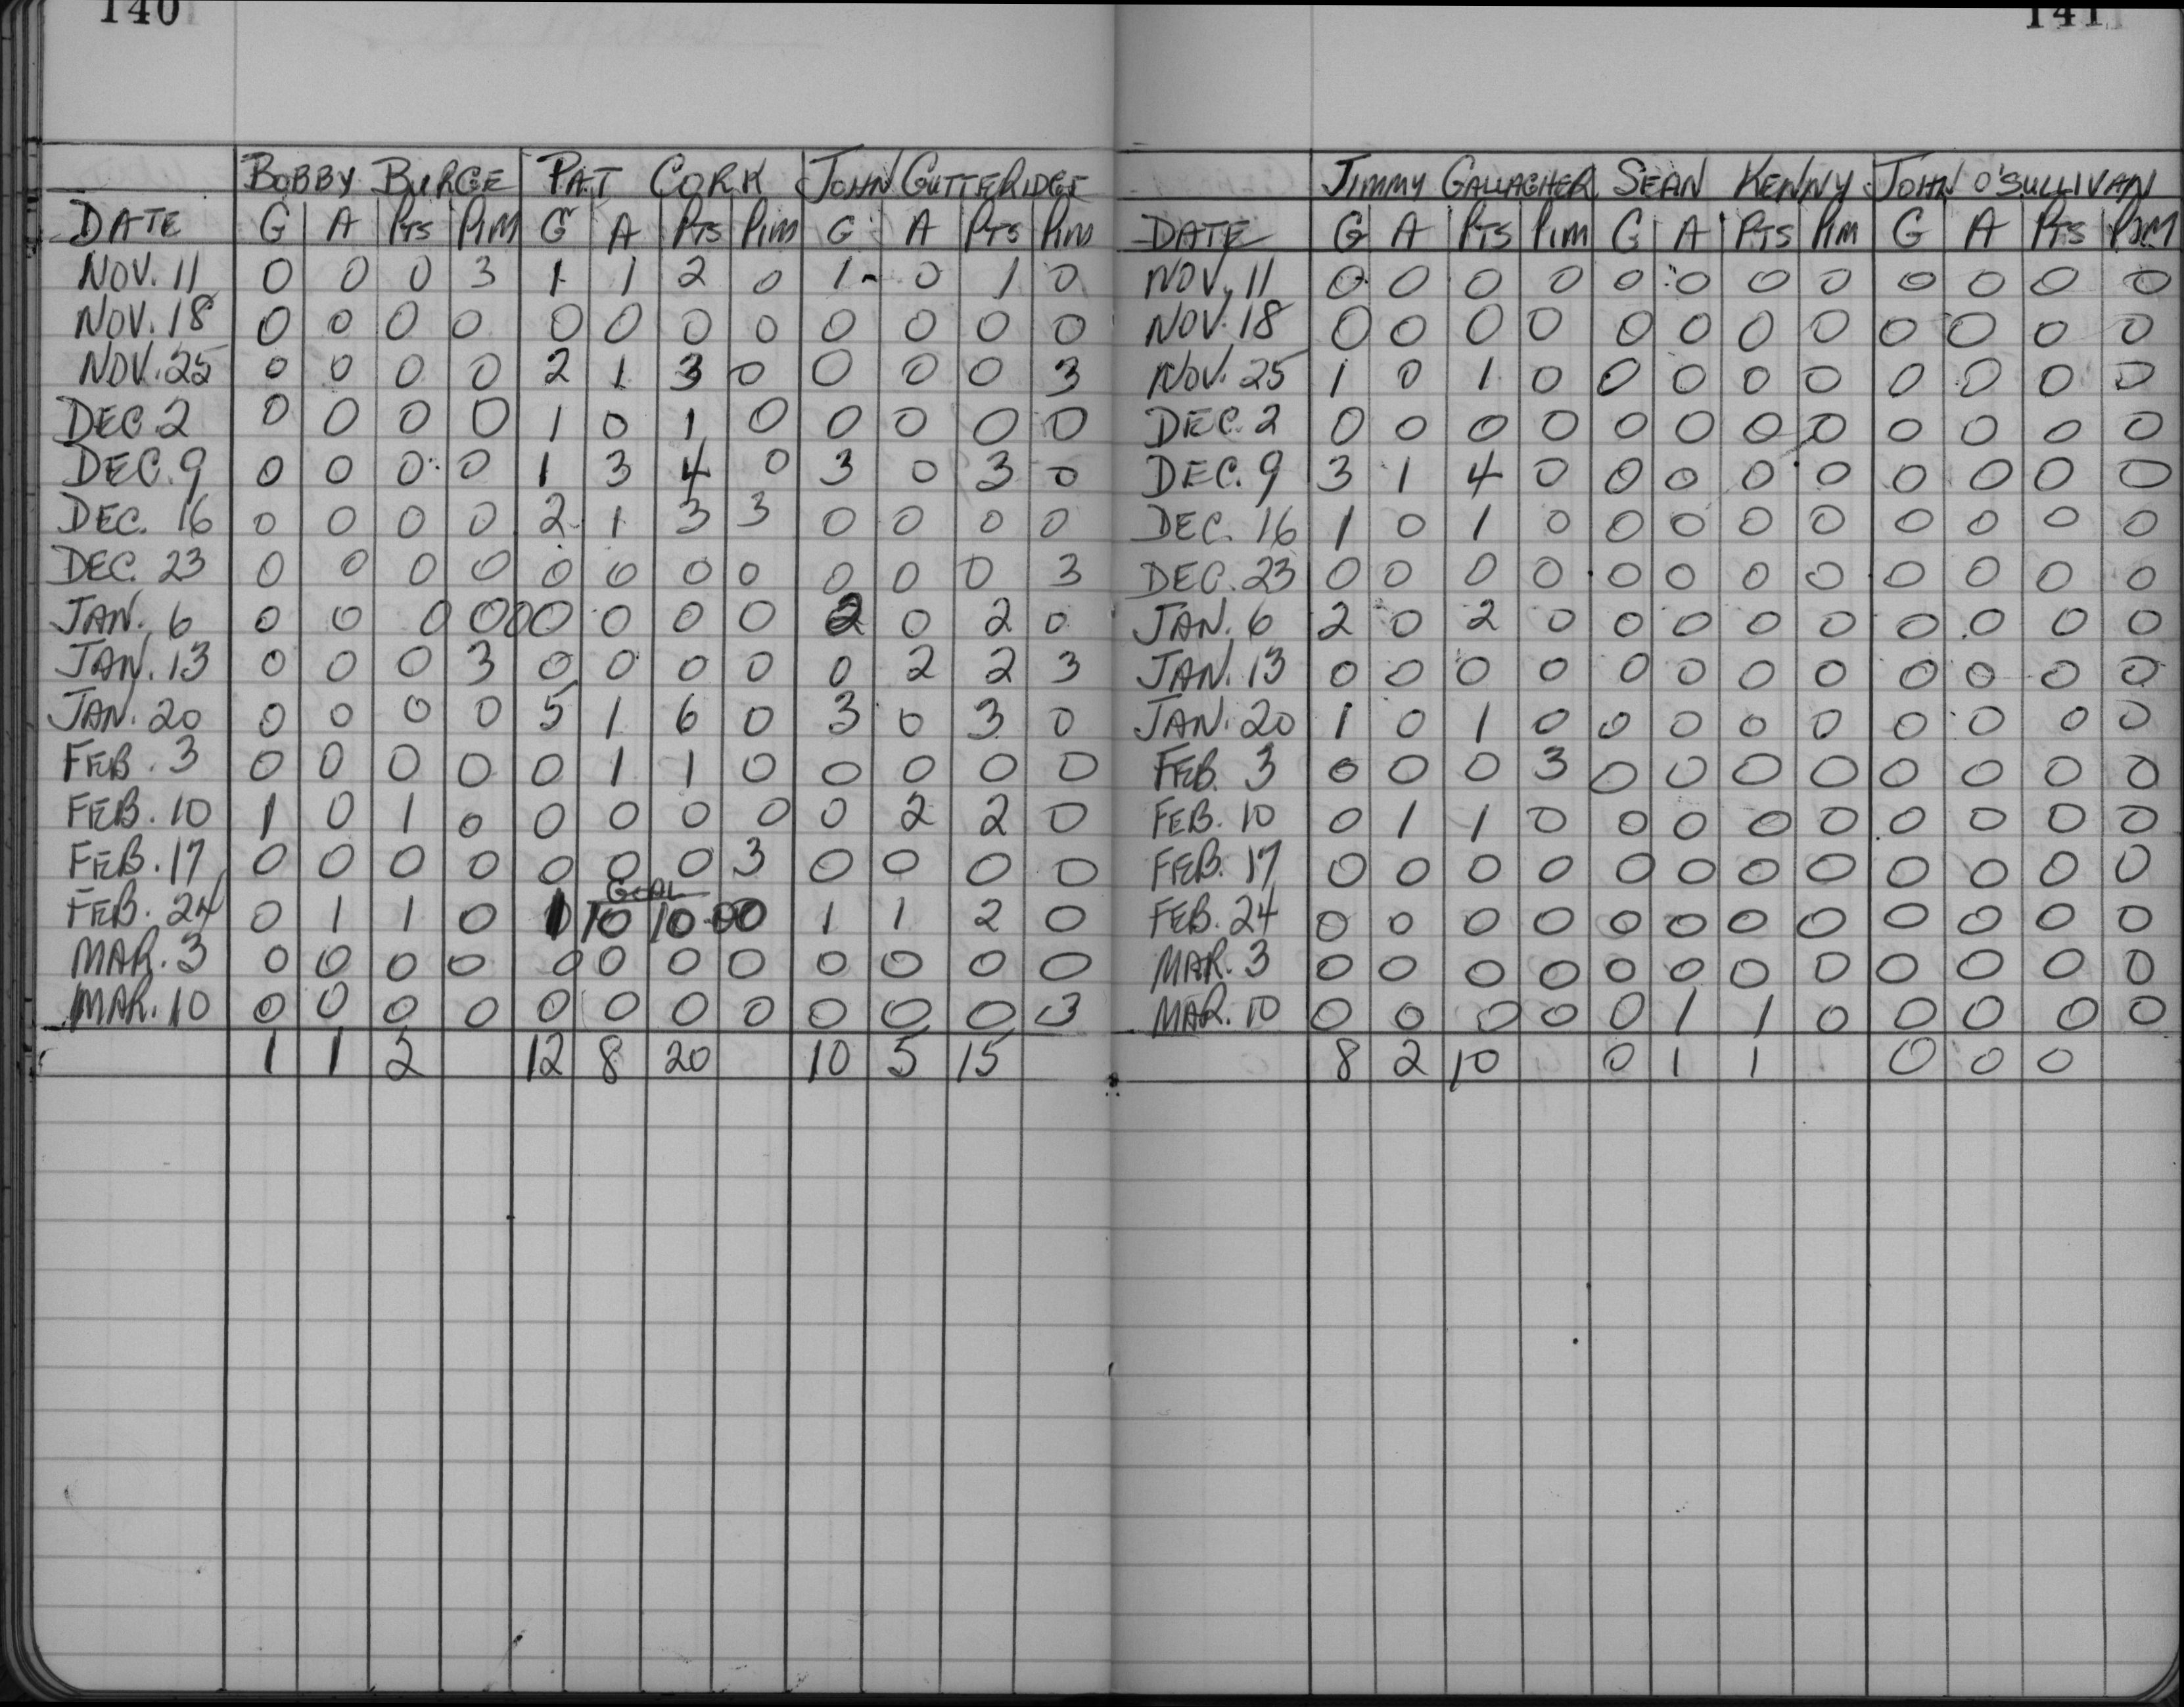 140
BOBBY BURGE PAT CORK JOHN GUTTERIDGE
DATE G A PTS PIM G A PTS PIM G A PTS PIM
NOV. 11 0 0 0 3 1 1 2 0 1 0 1 0
NOV. 18 0 0 0 0 0 0 0 0 0 0 0 0
NOV. 25 0 0 0 0 2 1 3 0 0 0 0 3
DEC. 2 0 0 0 0 1 0 1 0 0 0 0 0
DEC. 9 0 0 0 0 1 3 4 0 3 0 3 0
DEC. 16 0 0 0 0 2 1 3 3 0 0 0 0
DEC. 23 0 0 0 0 0 0 0 0 0 0 0 3
JAN. 6 0 0 0 0 0 0 0 0 0 2 0 2 0
JAN. 13 0 0 0 3 0 0 0 0 0 2 2 3
JAN. 20 0 0 0 0 5 1 6 0 3 0 3 0
FEB. 3 0 0 0 0 0 1 1 0 0 0 0 0
FEB. 10 1 0 1 0 0 0 0 0 0 2 2 0
FEB. 17 0 0 0 0 0 0 0 3 0 0 0 0
GOAL
FEB. 24 0 1 1 0 1 1 2 0
MAR. 3 0 0 0 0 0 0 0 0 0 0 0 0
MAR. 10 0 0 0 0 0 0 0 0 0 0 0 3
1 1 2 12 8 20 10 5 15
141
JIMMY GALLAGHER SEAN KENNY JOHN O'SULLIVAN
DATE G A PTS PIM G A PTS PIM G A PTS PIM
NOV. 11 0 0 0 0 0 0 0 0 0 0 0 0
NOV. 18 0 0 0 0 0 0 0 0 0 0 0 0
NOV. 25 1 0 1 0 0 0 0 0 0 0 0 0
DEC. 2 0 0 0 0 0 0 0 0 0 0 0 0
DEC. 9 3 1 4 0 0 0 0 0 0 0 0 0
DEC. 16 1 0 1 0 0 0 0 0 0 0 0 0
DEC. 23 0 0 0 0 0 0 0 0 0 0 0 0
JAN. 6 2 0 2 0 0 0 0 0 0 0 0 0
JAN. 13 0 0 0 0 0 0 0 0 0 0 0 0
JAN. 20 1 0 1 0 0 0 0 0 0 0 0 0
FEB. 3 0 0 0 3 0 0 0 0 0 0 0 0
FEB. 10 0 1 1 0 0 0 0 0 0 0 0 0
FEB. 17 0 0 0 0 0 0 0 0 0 0 0 0
FEB. 24 0 0 0 0 0 0 0 0 0 0 0 0
MAR. 3 0 0 0 0 0 0 0 0 0 0 0 0
MAR. 10 0 0 0 0 0 1 1 0 0 0 0 0
8 2 10 0 1 1 0 0 0